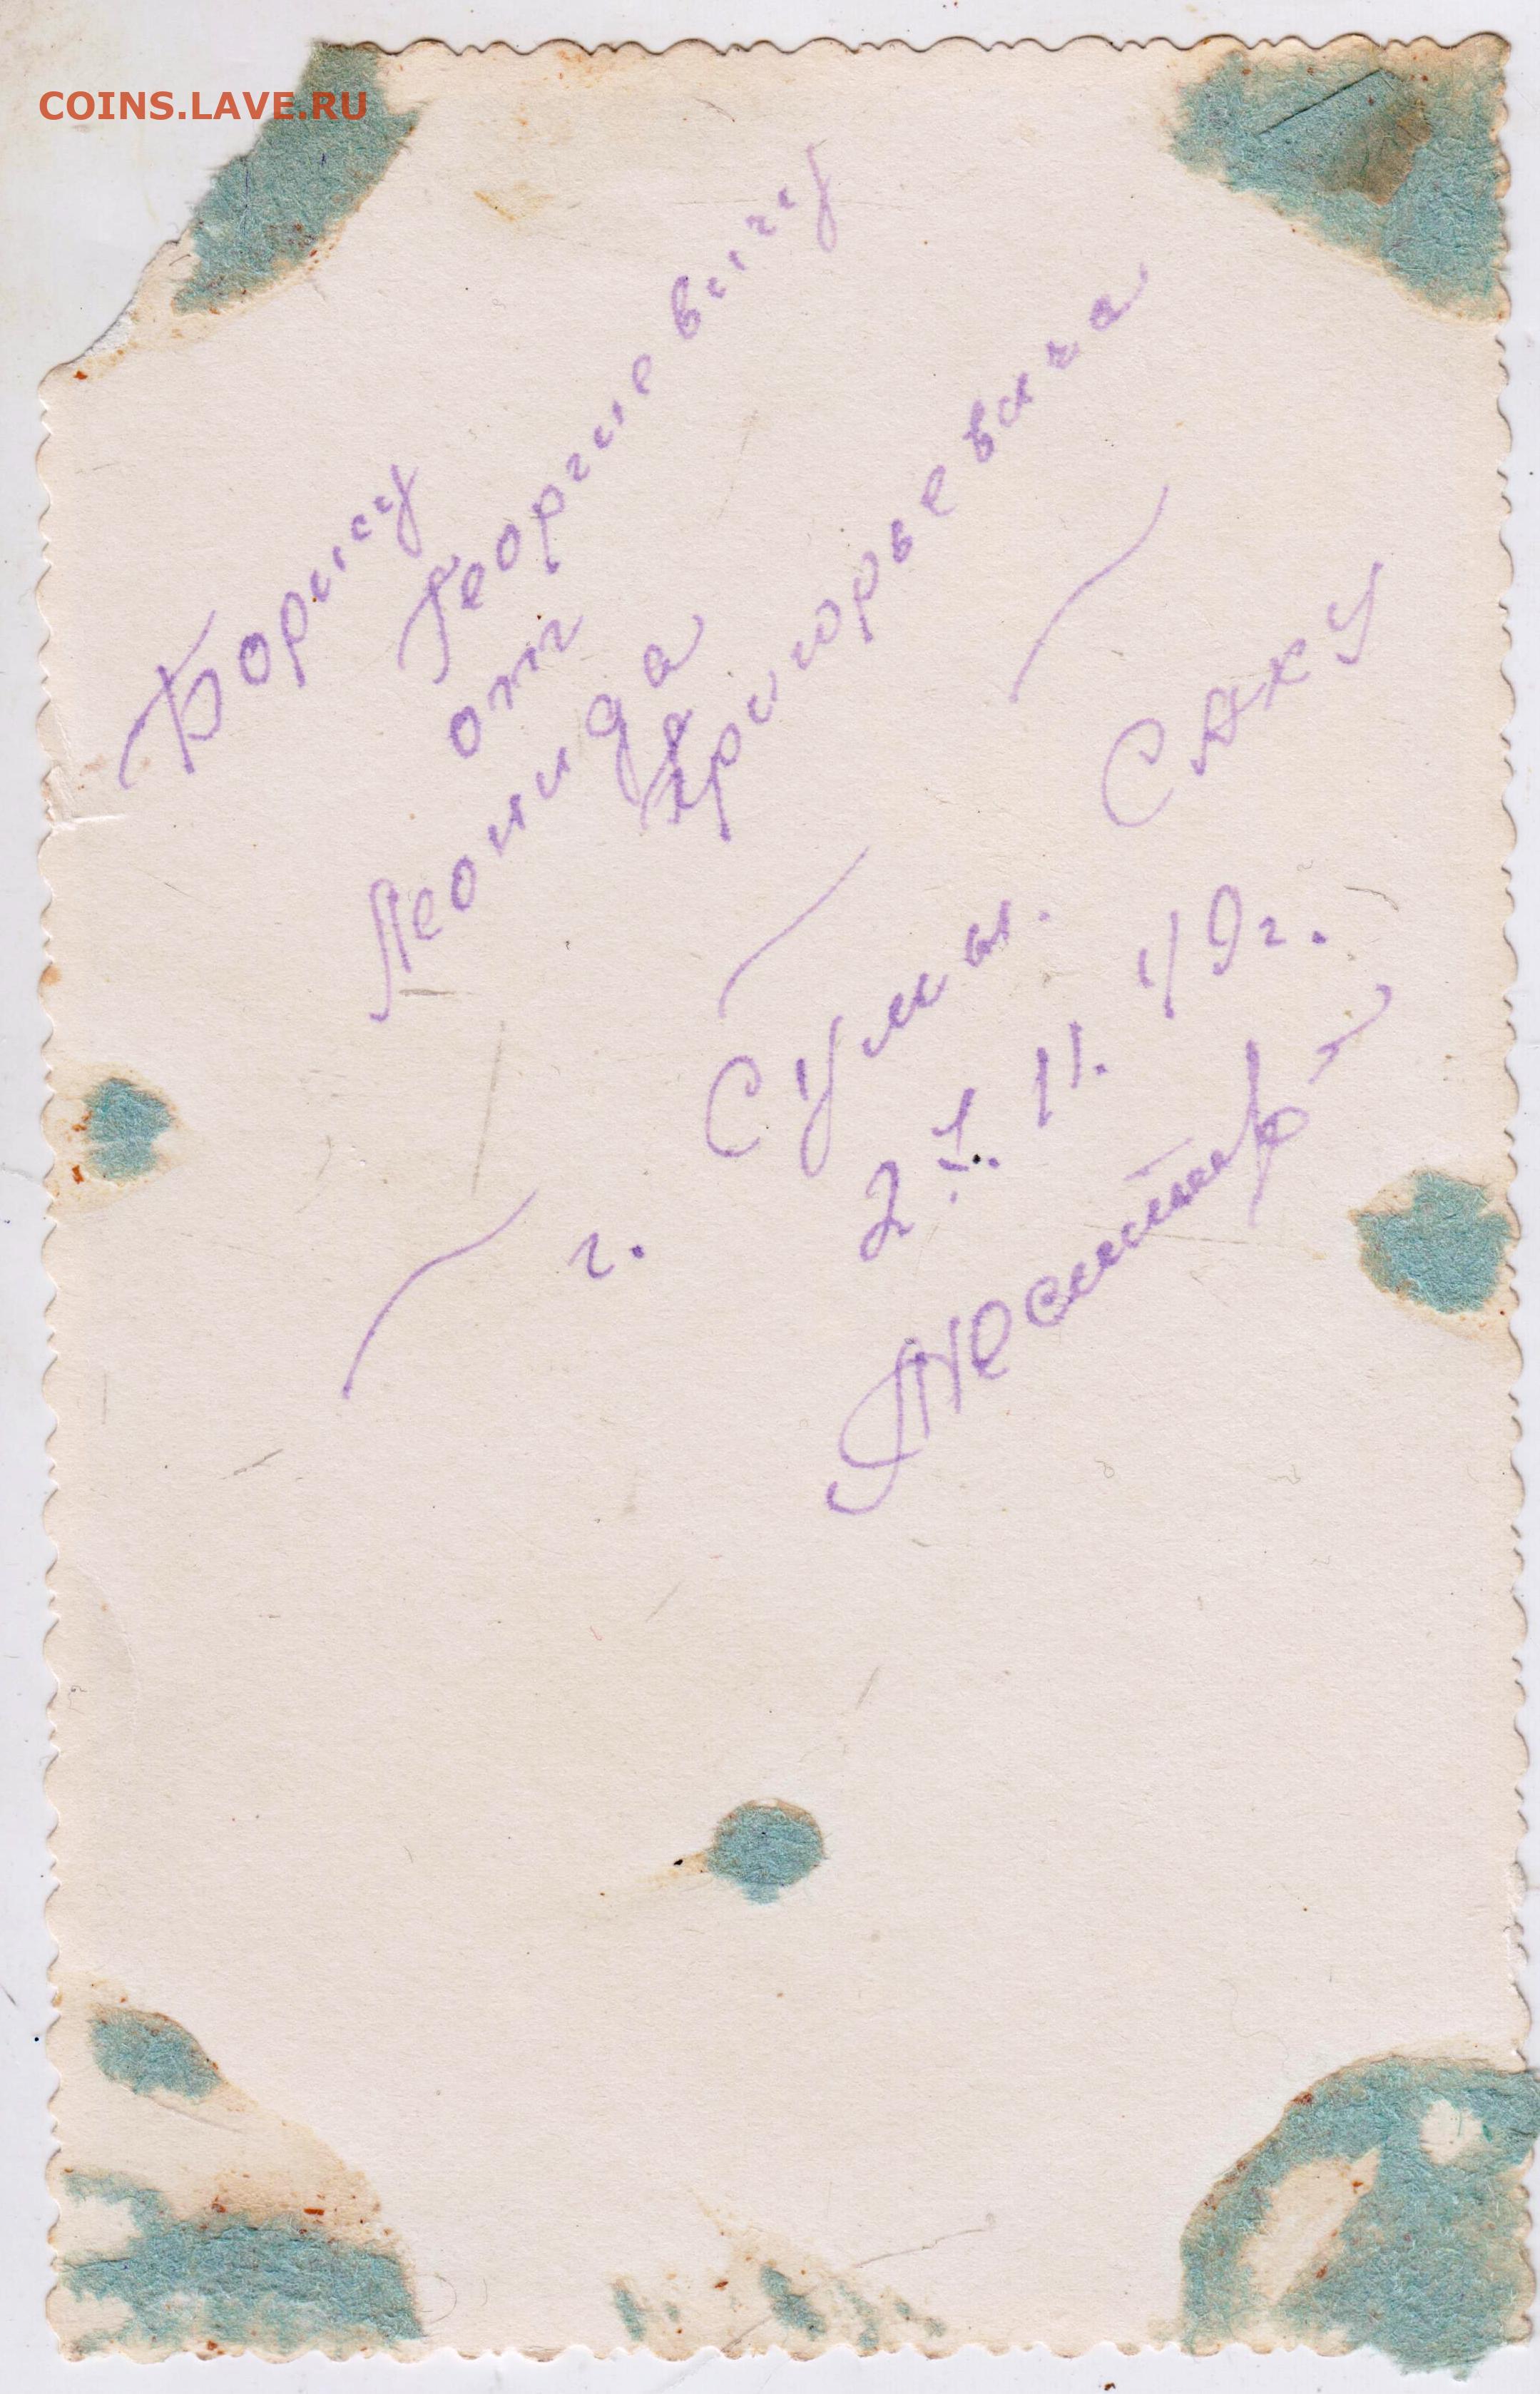 COINS.LAVE.RU
Борису
Георгиевичу
от
Леонида
Григорьевича
г. Сумы. САХУ
21. 11. 49г.